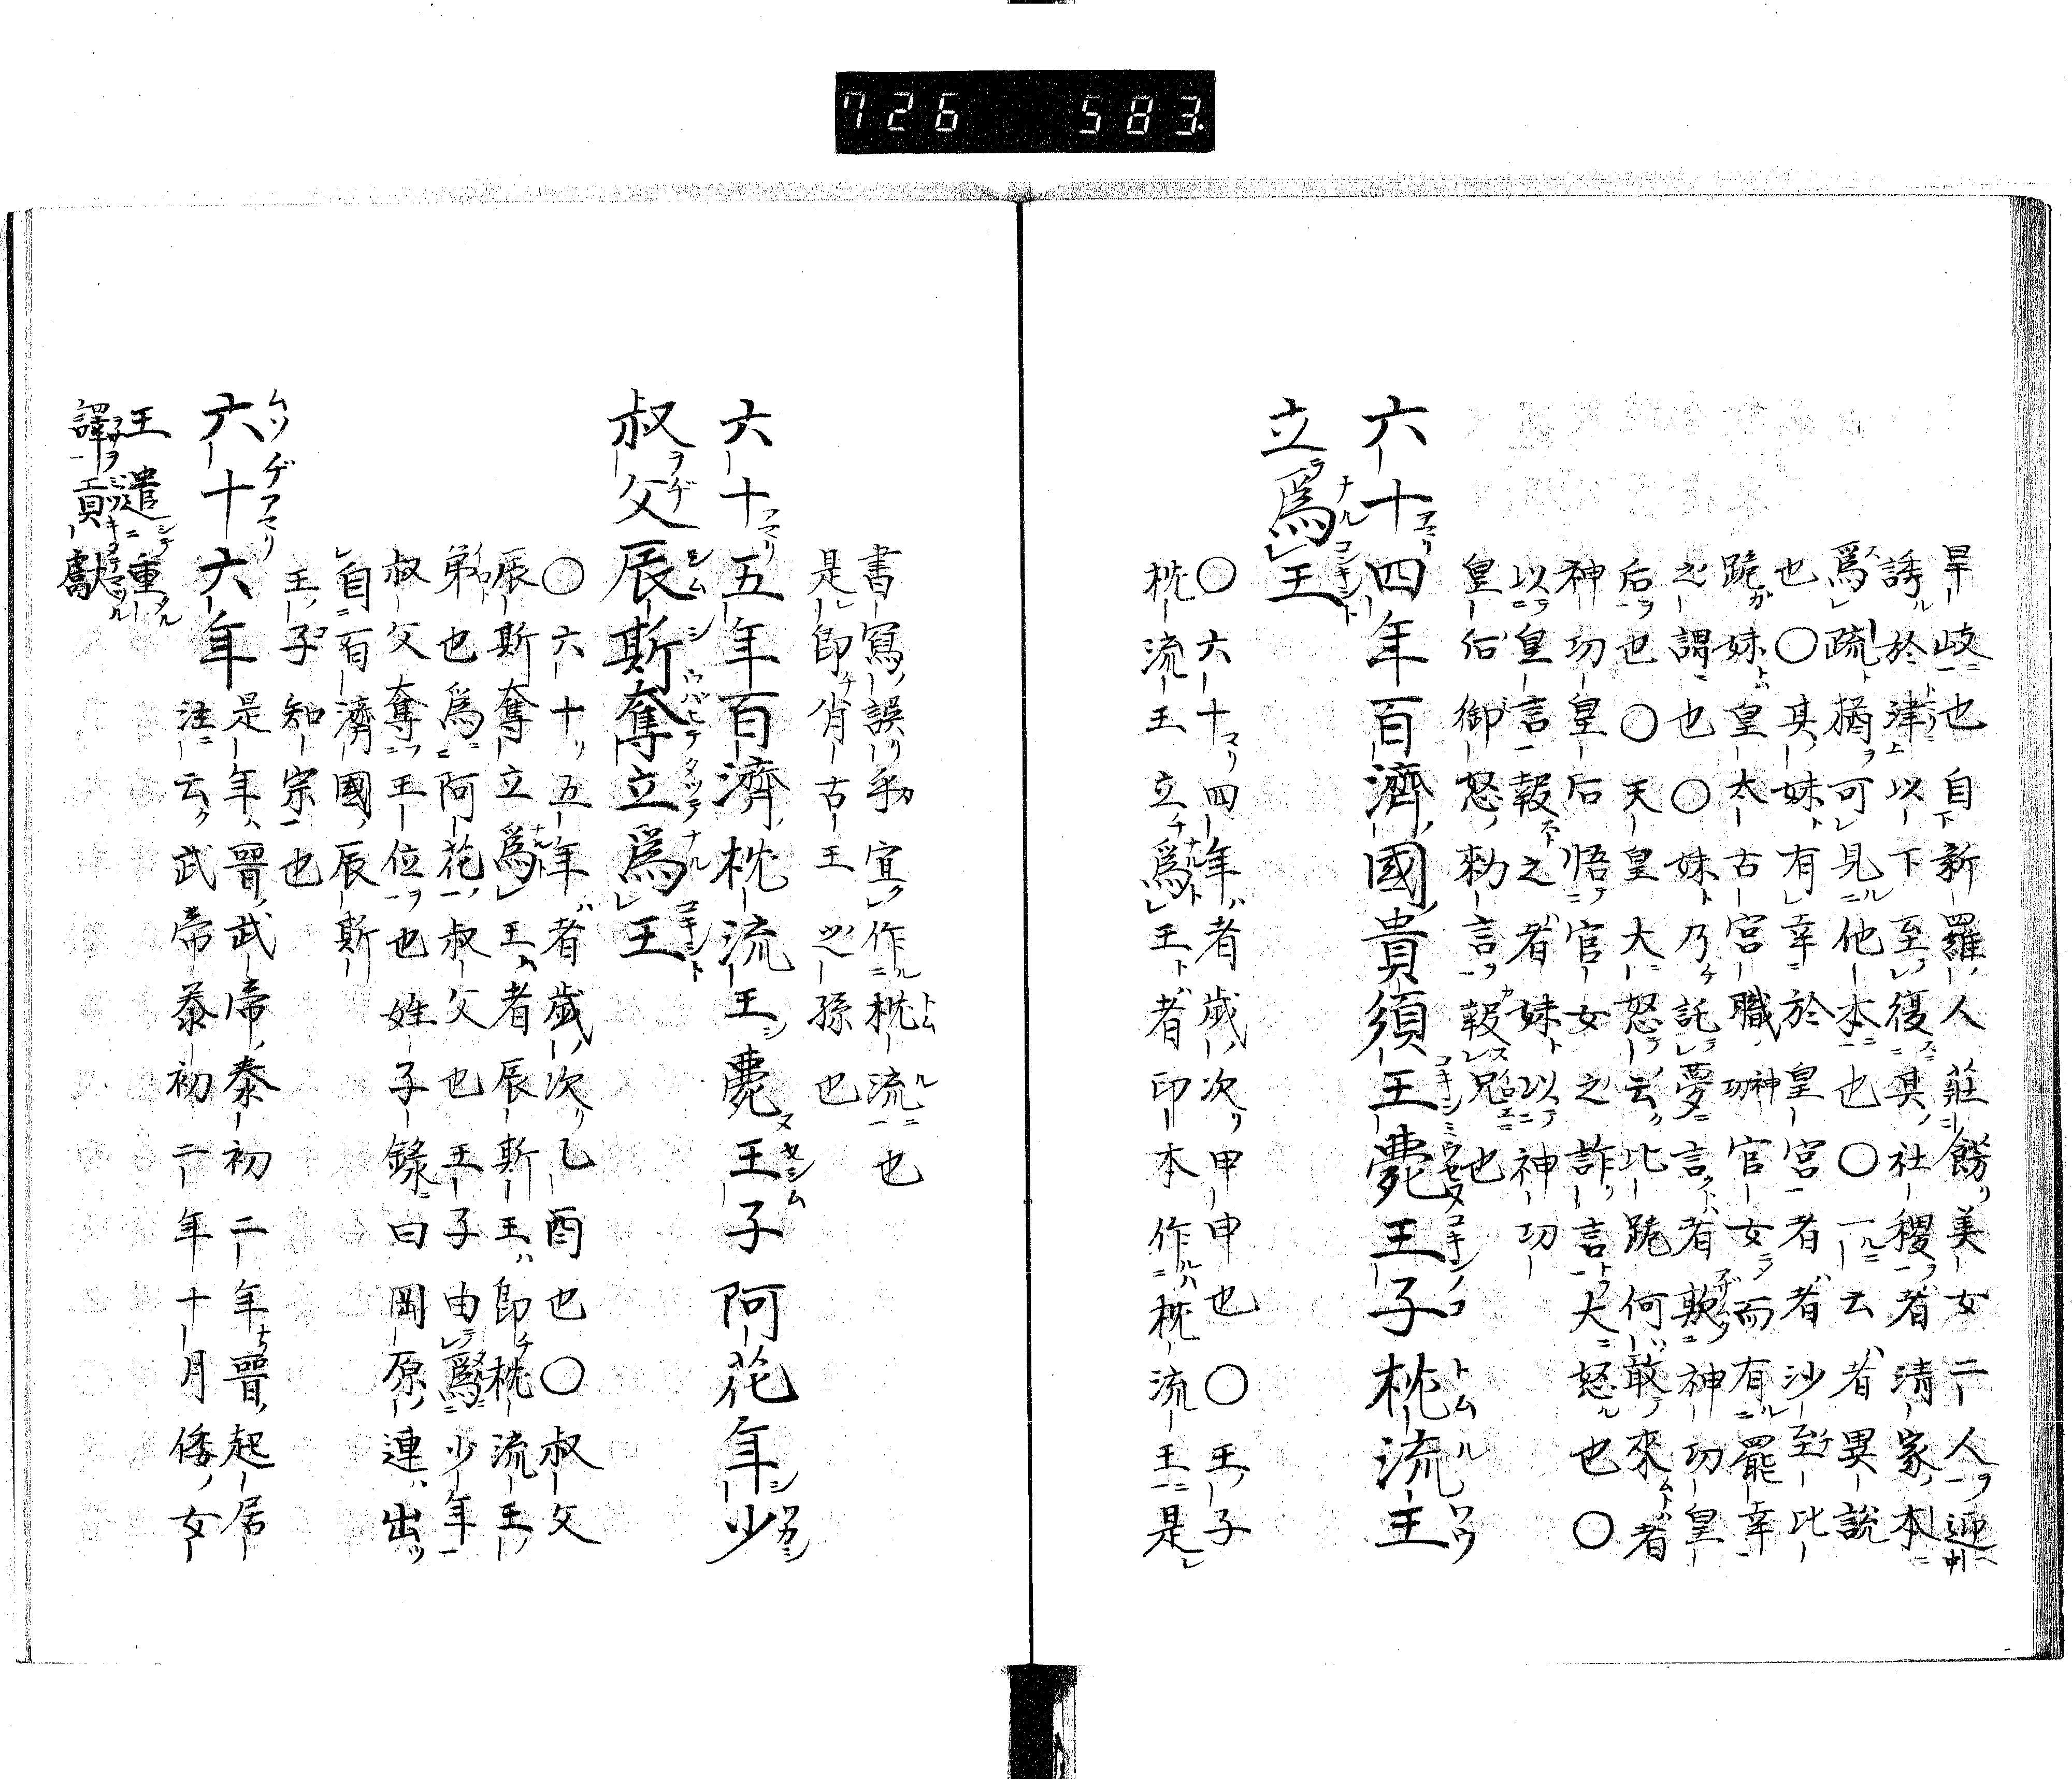 726 583.
旱岐也自新羅人莊餝美女二人迎
誘於津上以下至復其社稷者清家本
爲疏猶可見他本也〇一云者異說
也〇其妹有幸於皇宮者者沙至比
跪妹皇太古宮職神功官女而有罷幸
之謂也〇妹乃託夢言者欺神功皇
后也〇天皇大怒云比跪何敢來者
神功皇后悟官女之詐言大怒也〇
以皇言報之者妹以神功
皇后御怒勅言報兄也
六十四年百濟國貴須王薨王子枕流王
立爲王
〇六十四年者歲次甲申也〇王子
枕流王立爲王者印本作枕流王是
書寫誤手宜作枕流也
是即肖古王之孫也
六十五年百濟枕流王薨王子阿花年少
叔父辰斯奪立爲王
〇六十五年者歲次乙酉也〇叔父
辰斯奪立爲王者辰斯王即枕流王
弟也爲阿花叔父也王子由爲少年
叔父奪王位也姓子錄曰岡原連出
自百濟國辰斯
王子知宗也
六十六年
是年晉武帝泰初二年晉起居
注云武帝泰初二年十月倭女
王遣重
譯貢獻